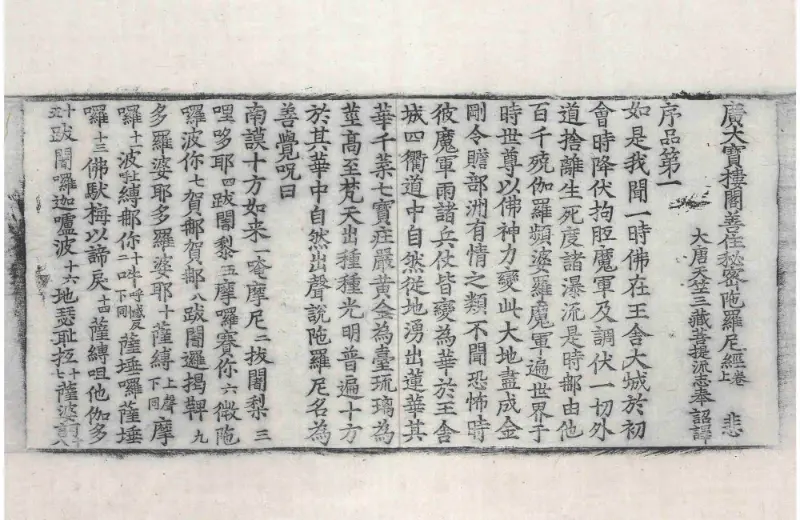 廣大寶樓閣善住秘密陁羅尼經卷上 悲
大唐天竺三藏菩提流志奉 詔譯
序品第一
如是我聞一時佛在王舍大城於初
會時降伏拘胝魔軍及調伏一切外
道捨離生死度諸瀑流是時鄔由他
百千殑伽羅頻婆羅魔軍遍世界于
時世尊以佛神力變此大地盡成金
剛令贍部洲有情之類不聞恐怖時
彼魔軍雨諸兵仗皆變為華於王舍
城四衢道中自然從地湧出蓮華其
華千葉七寶庄嚴黄金為臺琉璃為
莖高至梵天出種種光明普遍十方
於其華中自然出聲說陁羅尼名為
善覺呪曰
南謨十方如来一唵摩尼二拔闍梨三
哩哆耶四跋闍黎五摩囉賽你六微陁
囉波你七賀鄔賀鄔八跋闍邏揭鞞九
多羅婆耶多羅婆耶十薩縛上聲下同摩
囉十一波吡縛鄔你十二吽薩埵囉薩埵
囉十三佛馱梅以諦戾十四薩縛呾他伽多
十五跋闍囉迦嚧波十六地瑟耻抂十七薩婆訶十八